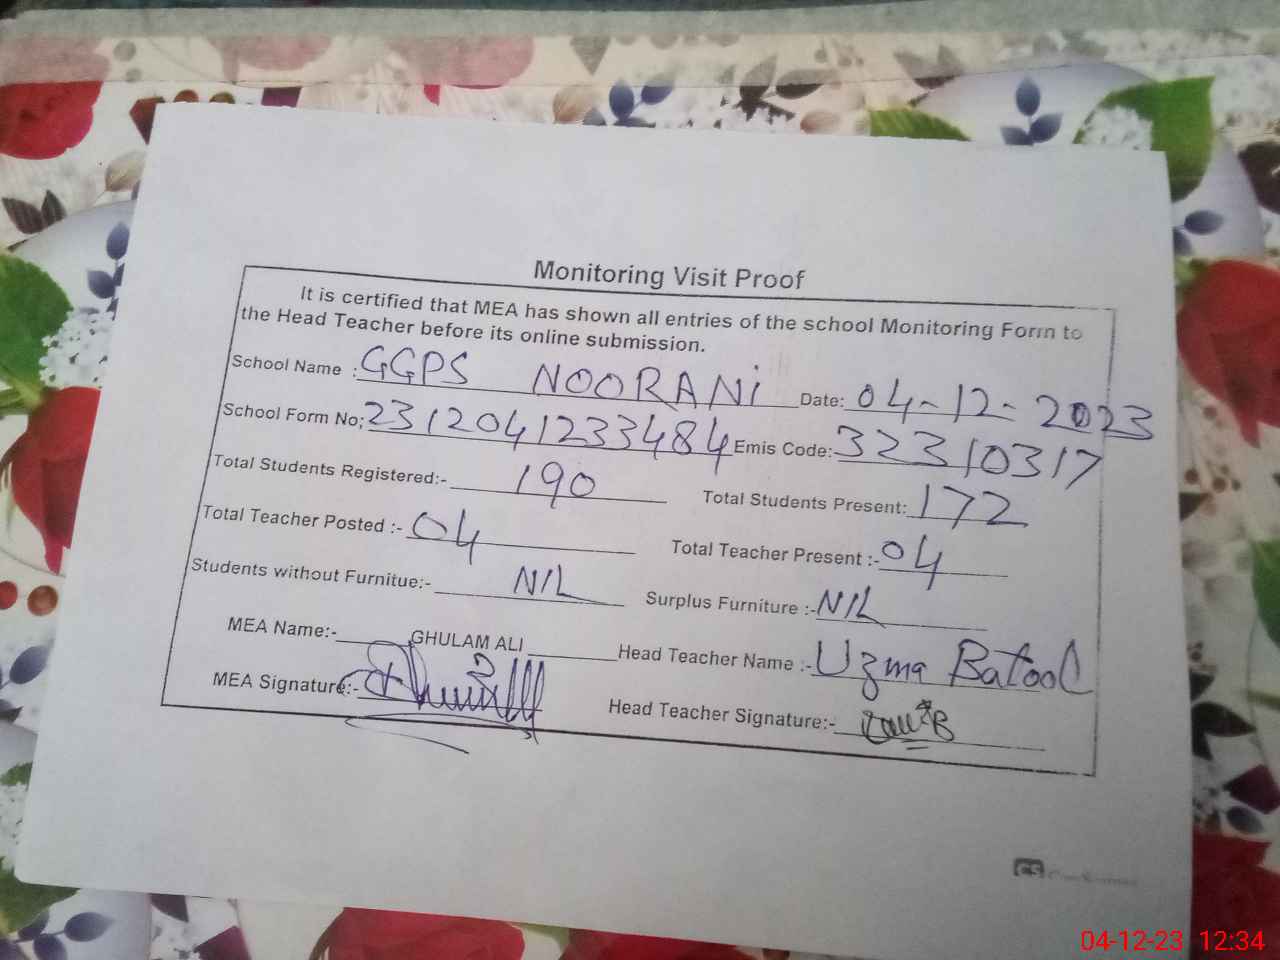 Monitoring Visit Proof
It is certified that MEA has shown all entries of the school Monitoring Form to
the Head Teacher before its online submission.
School Name :GGPS NOORANi Date: 04-12-2023
School Form No; 2312041233484 Emis Code: 32310317
Total Students Registered:- 190 Total Students Present: 172
Total Teacher Posted :- 04 Total Teacher Present :- 04
Students without Furnitue:- NIL Surplus Furniture :- NIL
MEA Name:- GHULAM ALI Head Teacher Name :- Uzma Batool
MEA Signature:- Head Teacher Signature:-
CS
04-12-23 12:34